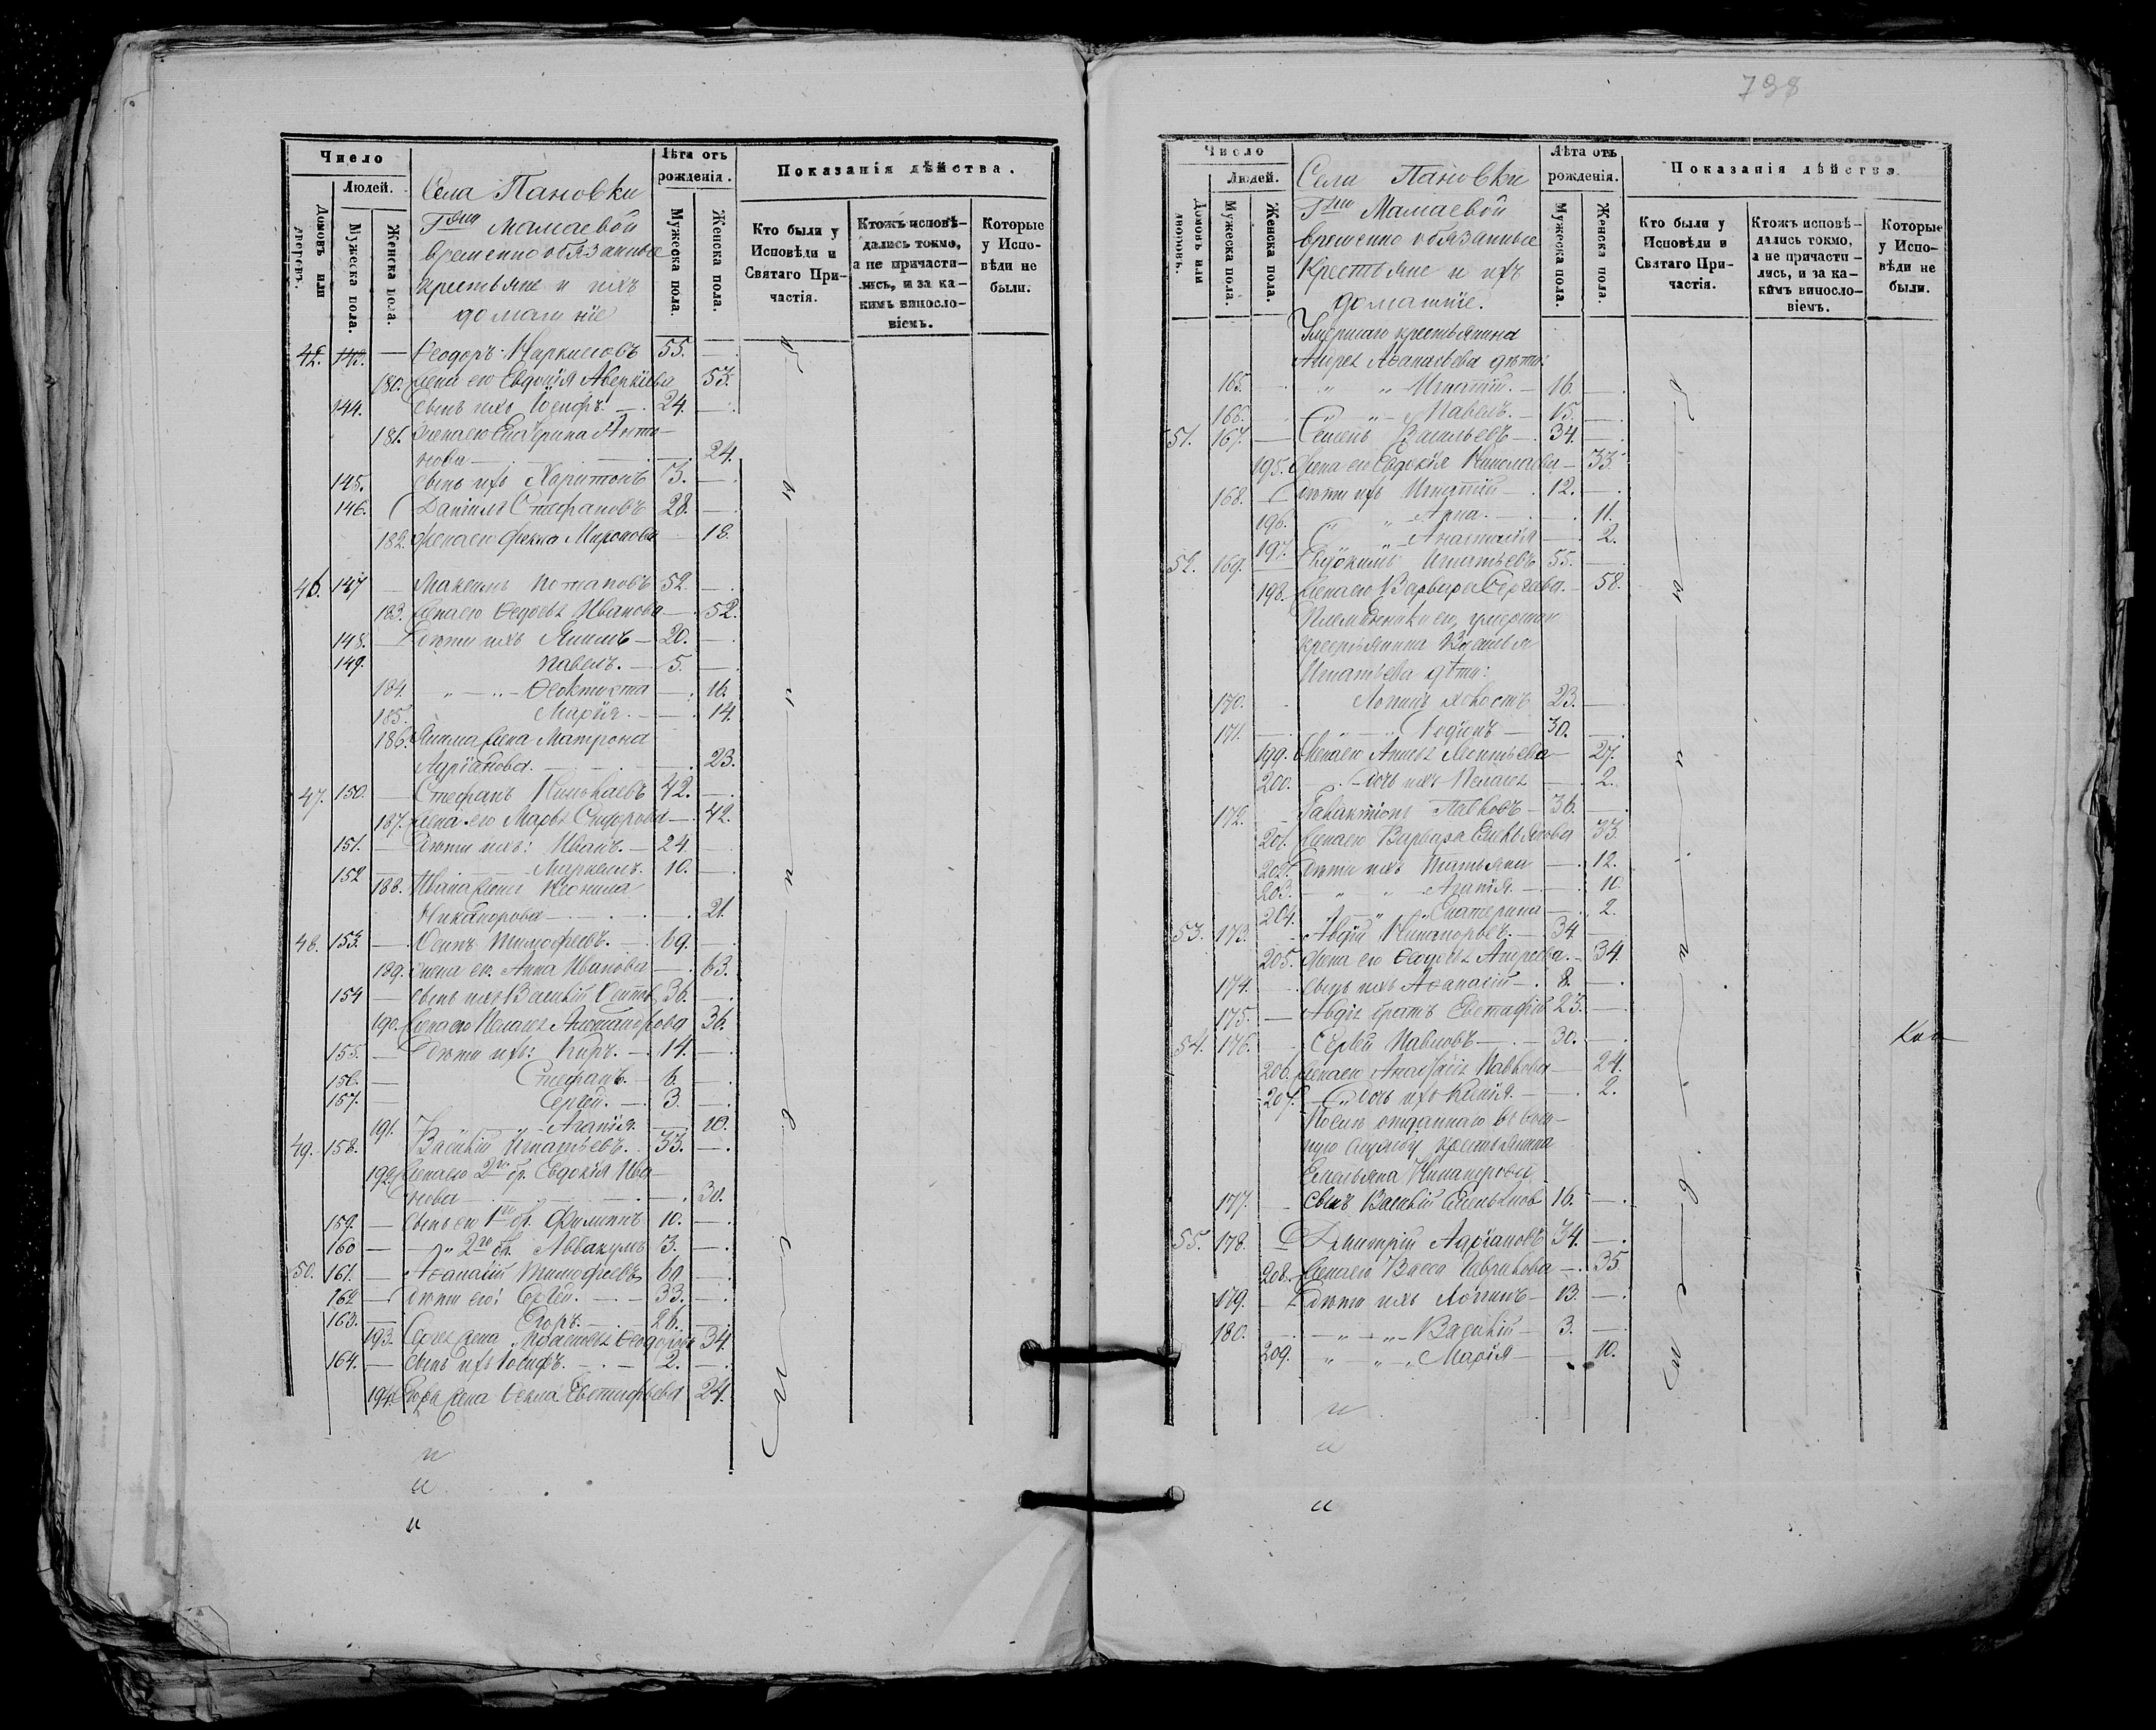 738
Число
Людей.
Домовъ или дворовъ.
Мужеска пола.
Женска пола.
Села Пановки
Г-жи Мамаевой
временно обязанные
крестьяне и ихъ
домашніе
Лѣта отъ рожденія.
Мужеска пола.
Женска пола.
Показанія дѣйства.
Кто были у Исповѣди и Святаго Причастія.
Ктожъ исповѣдались токмо, а не причастились, и за какимъ винословіемъ.
Которые у Исповѣди не были.
143. — Ѳеодоръ Наркисовъ 55.
180. Жена его Евдокія Аверкіева 53.
144. Сынъ ихъ Іосифъ. — 24.
181. Жена его Екатерина Анто-
нова — 24.
145. Сынъ ихъ Харитонъ 3.
146. Даніилъ Стефановъ 28.
182. Жена его Фекла Миронова 18.
46. 147 — Максимъ Потаповъ 52.
183. Жена его Ѳедосья Иванова — 52.
148. — Дѣти ихъ Якимъ — 20.
149. Павелъ. — 5.
184. " — " — Ѳеоктиста — 16.
185. Марія. — 14.
186. Якима жена Матрона
Адріанова. — 23.
47. 150. — Стефанъ 42.
187. Жена его Марья Сидорова — 42.
151. — Дѣти ихъ: Иванъ. — 24.
152 — Маркелъ. 10.
188. Ивана жена Неонила
Никанорова — 21.
48. 153. — Осипъ Тимофеевъ. — 69.
189. Жена его Анна Иванова — 63.
154 — Сынъ ихъ Василій Осиповъ 36.
190. Жена его Пелагея Александрова 36.
155. — Дѣти ихъ: Киръ. — 14.
156. — Стефанъ. — 6.
157. — Сергей. — 3.
191. Агапія. — 10.
49. 158. Василій Игнатьевъ. 33.
192. Жена его 2го бр. Евдокія Ива-
нова — 30.
159. — Сынъ его 1го бр. Филиппъ 10.
160 — " 2го бр. Аввакумъ 3.
50. 161. — Аѳанасій Тимофеевъ 60
162 — Дѣти его: Сергей. — 33.
163. Егоръ. — 26.
193. Сергея жена Ѳеодорова 34.
164. — Сынъ ихъ Іосифъ. — 2.
194. Егора жена Ѳекла Евстафьева 24.
Число
Людей.
Домовъ или дворовъ.
Мужеска пола.
Женска пола.
Села Пановки
Г-жи Мамаевой
временно обязанные
Крестьяне и ихъ
домашніе.
Лѣта отъ рожденія.
Мужеска пола.
Женска пола.
Показанія дѣйства.
Кто были у Исповѣди и Святаго Причастія.
Ктожъ исповѣдались токмо, а не причастились, и за какимъ винословіемъ.
Которые у Исповѣди не были.
Умершаго крестьянина
Андрея Аѳанасьева дѣти:
165. " " Игнатій. — 16.
166. — " — Павелъ. — 15.
51. 167. — Семенъ Васильевъ — 34.
195. Жена его Евдокія Николаева — 33.
168. — Дѣти ихъ Игнатій — 12.
196. " Анна. — 11.
197. " Анастасія — 2.
52. 169. — Евдокимъ Игнатьевъ 55.
198. Жена его Варвара Сергеева. — 58.
Племянники его, умершаго
крестьянина
Игнатьева дѣти:
170. Логинъ холостъ 23.
171. — " — Родіонъ — 30.
199. Жена его Леонтьева — 27.
200. — Дочь ихъ Пелагея 2.
172. Галактіонъ Павловъ — 36.
201. Жена его Варвара Емельянова 33
202. Дѣти ихъ Татьяна — 12.
203. " " Агапія. — 10.
204. " Екатерина — 2.
53. 173. Авдій Никаноровъ. — 34
205. Жена его Ѳедосья Андреева. — 34.
174. Сынъ ихъ Аѳанасій — 8.
175. — Авдія братъ Евстафій 23.
54. 176. Сергей Павловъ — 30.
206. Жена его Павлова — 24.
207. — Дочь ихъ Ксенія. — 2.
Послѣ отданнаго въ воен-
ную службу крестьянина
Емельяна Никанорова
177. — сынъ Василій Емельяновъ 16.
55. 178. — Дмитрій Адріановъ 34.
208. Жена его Васса Гаврилова — 35
179. — Дѣти ихъ Логинъ — 13.
180. — " — " — Василій — 3.
209. " — " — Марія — 10.